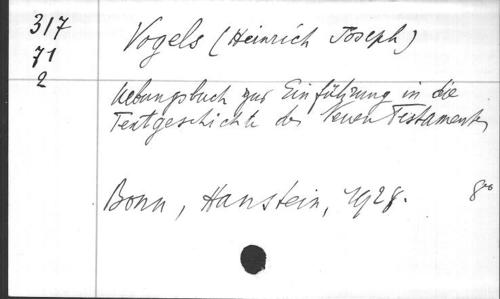 317
71
2
Vogels (Heinrich Joseph)
Uebungsbuch zur Einführung in die
Textgeschichte des Neuen Testaments
Bonn, Hanstein, 1928. 8°